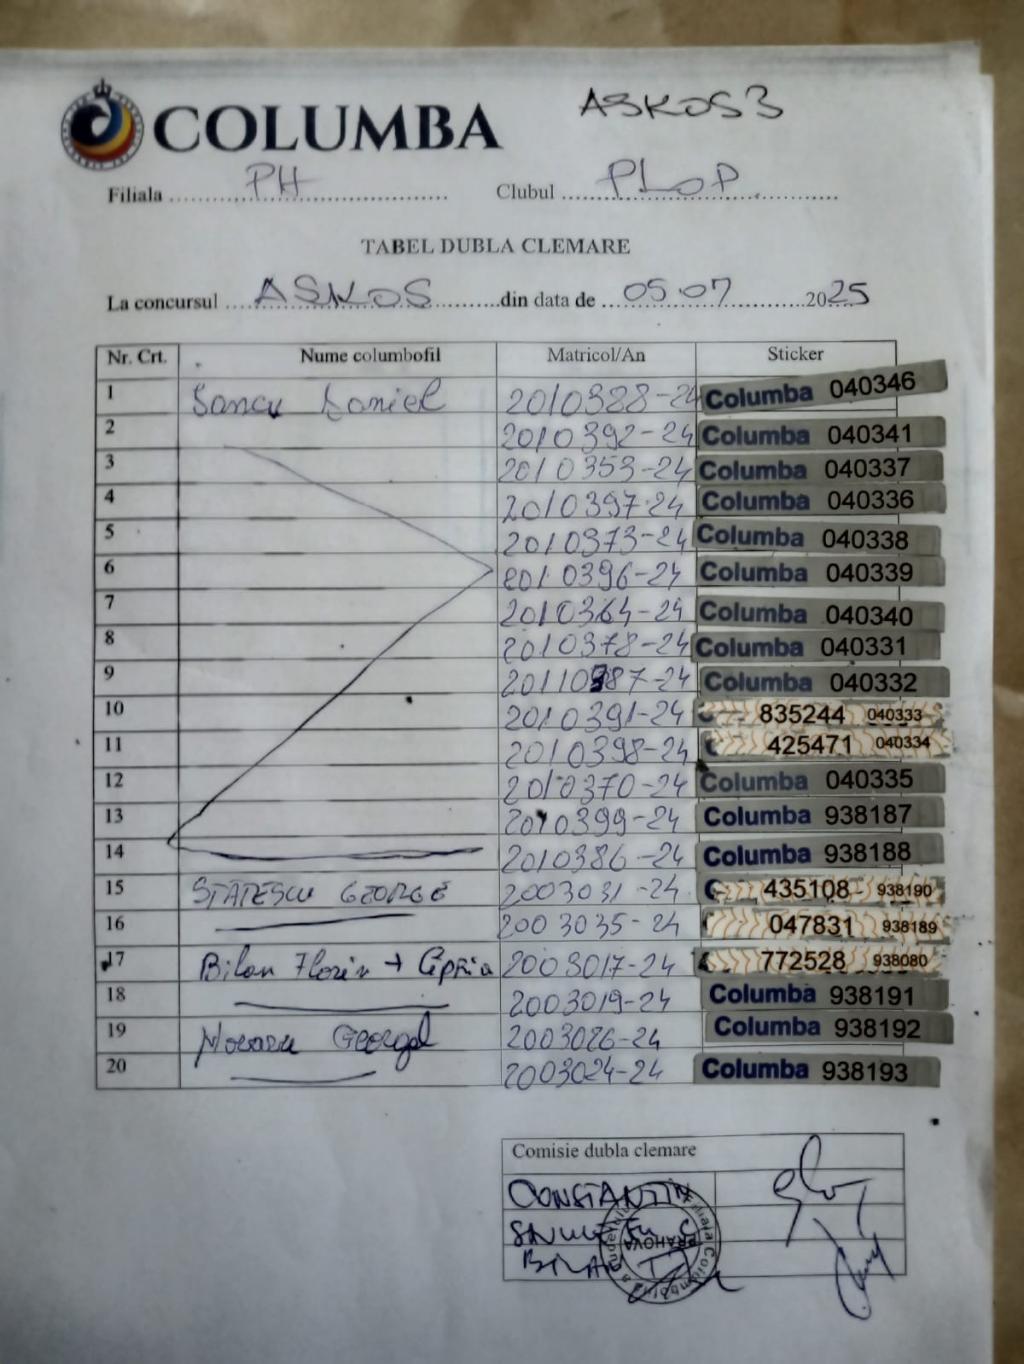 COLUMBA ASKOS3
Filiala PH Clubul PLOP
TABEL DUBLA CLEMARE
La concursul ASKOS din data de 05.07 2025
Nr. Crt. Nume columbofil Matricol/An Sticker
1 Daniel 2010388-24 Columba 040346
2 2010392-24 Columba 040341
3 2010353-24 Columba 040337
4 2010397-24 Columba 040336
5 2010373-24 Columba 040338
6 2010396-24 Columba 040339
7 2010364-24 Columba 040340
8 2010378-24 Columba 040331
9 Columba 040332
10 2010391-24 835244 040333
11 2010398-24 425471 040334
12 2010370-24 Columba 040335
13 2010399-24 Columba 938187
14 2010386-24 Columba 938188
15 STATESCU GEORGE 2003031-24 435108 938190
16 2003035-24 047831 938189
17 Bilan Florin + Cipria 2003017-24 772528 938080
18 2003019-24 Columba 938191
19 2003026-24 Columba 938192
20 2003024-24 Columba 938193
Comisie dubla clemare
CONSTANTIN
PRAHOVA